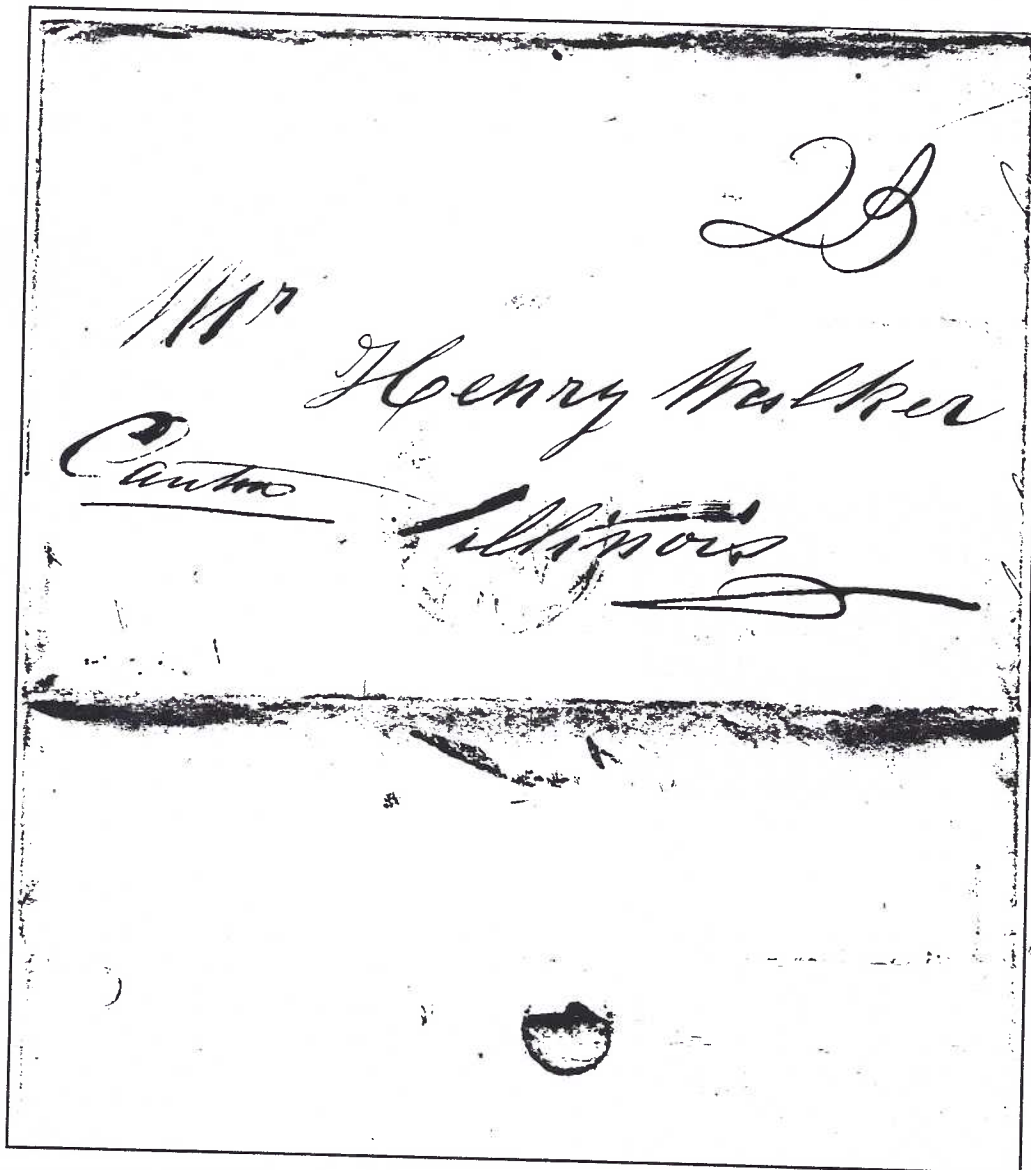 Mr
Henry Walker
Canton
Illinois